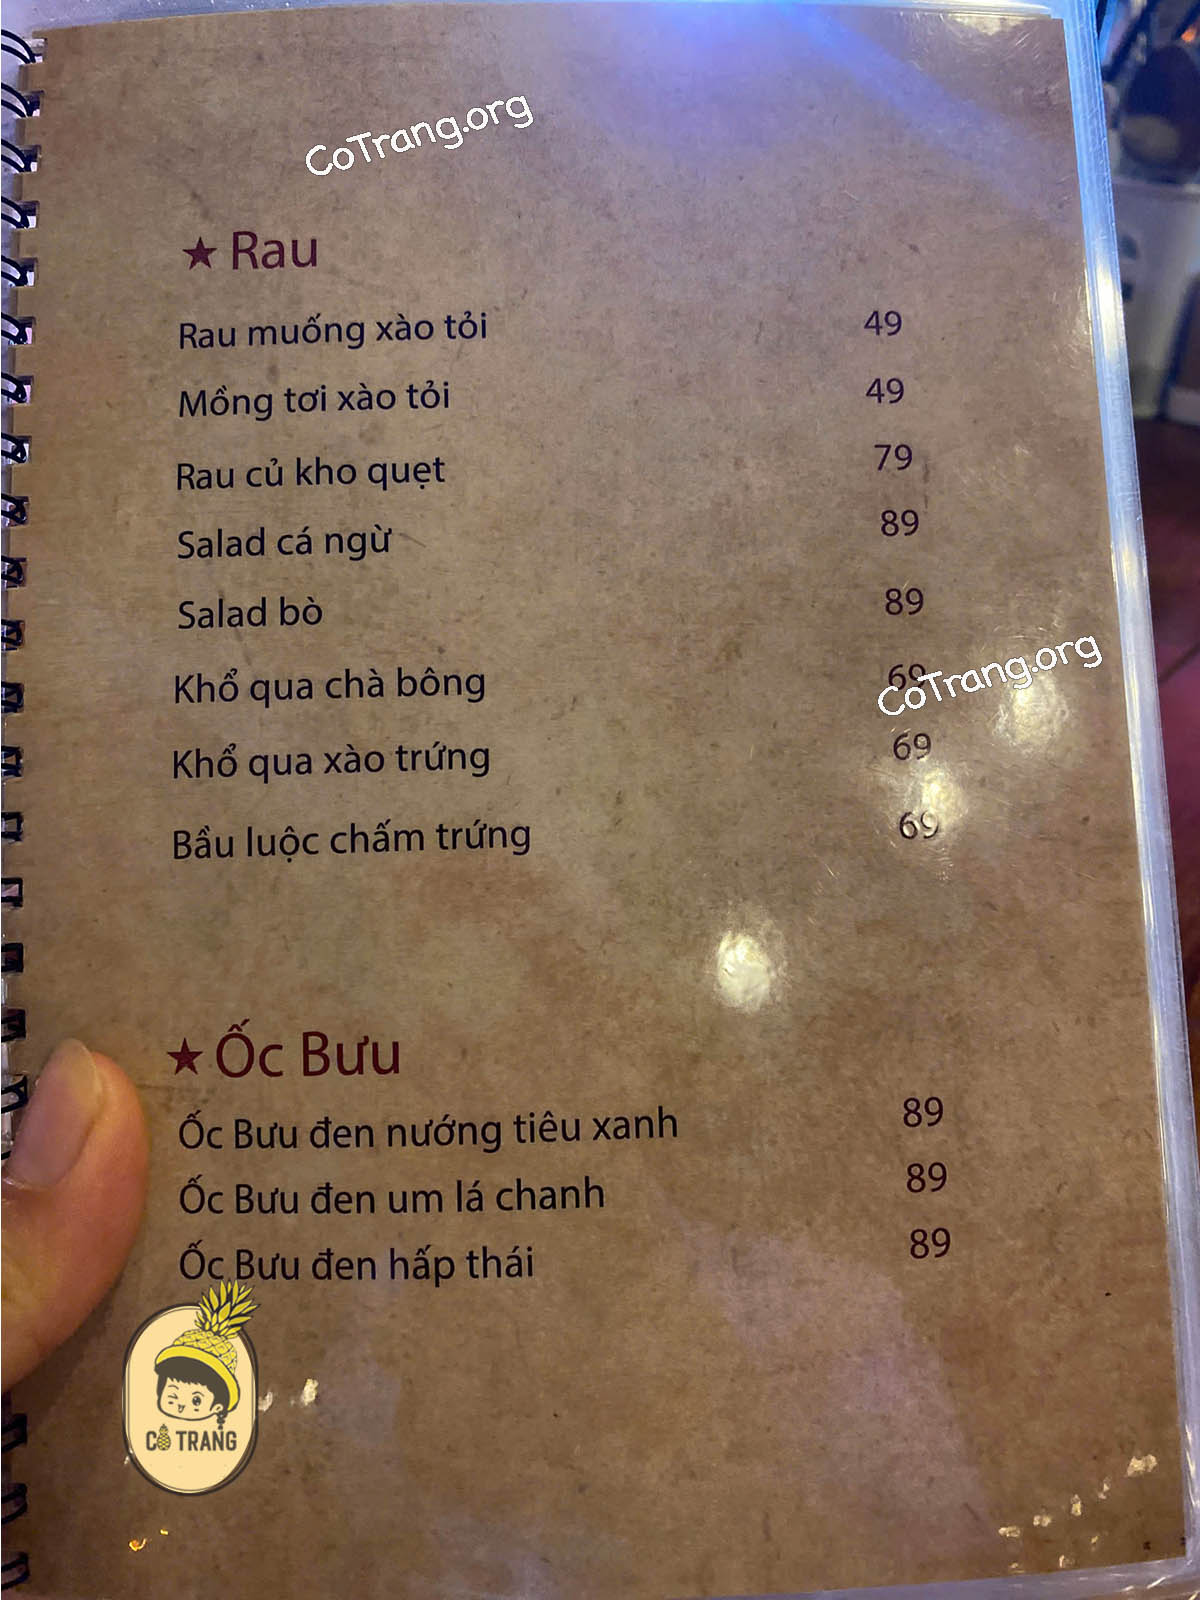 CoTrang.org
★ Rau
Rau muống xào tỏi 49
Mồng tơi xào tỏi 49
Rau củ kho quẹt 79
Salad cá ngừ 89
Salad bò 89
Khổ qua chà bông 69
CoTrang.org
Khổ qua xào trứng 69
Bầu luộc chấm trứng 69
★ Ốc Bưu
Ốc Bưu đen nướng tiêu xanh 89
Ốc Bưu đen um lá chanh 89
Ốc Bưu đen hấp thái 89
CÔ TRANG